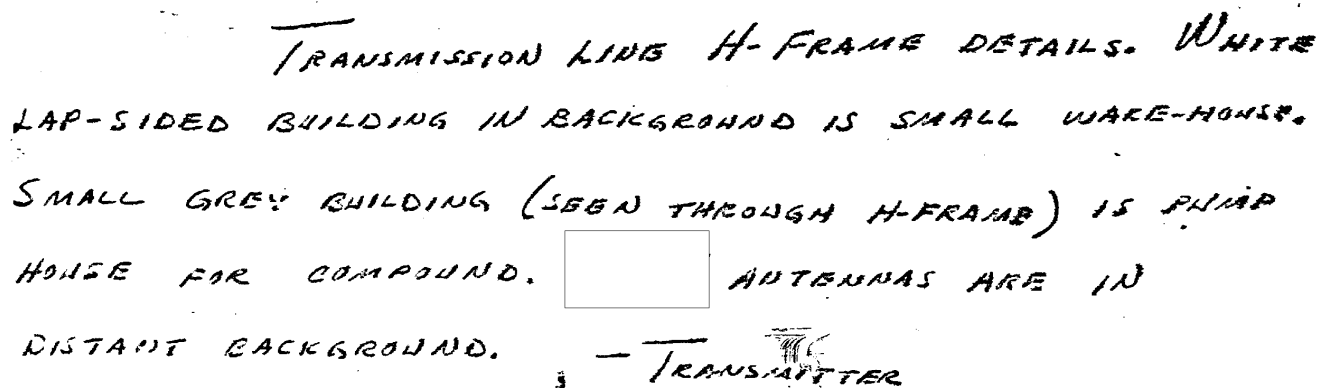 TRANSMISSION LINE H-FRAME DETAILS. WHITE
LAP-SIDED BUILDING IN BACKGROUND IS SMALL WARE-HOUSE.
SMALL GREY BUILDING (SEEN THROUGH H-FRAME) IS PUMP
HOUSE FOR COMPOUND. ANTENNAS ARE IN
DISTANT BACKGROUND. - TRANSMITTER